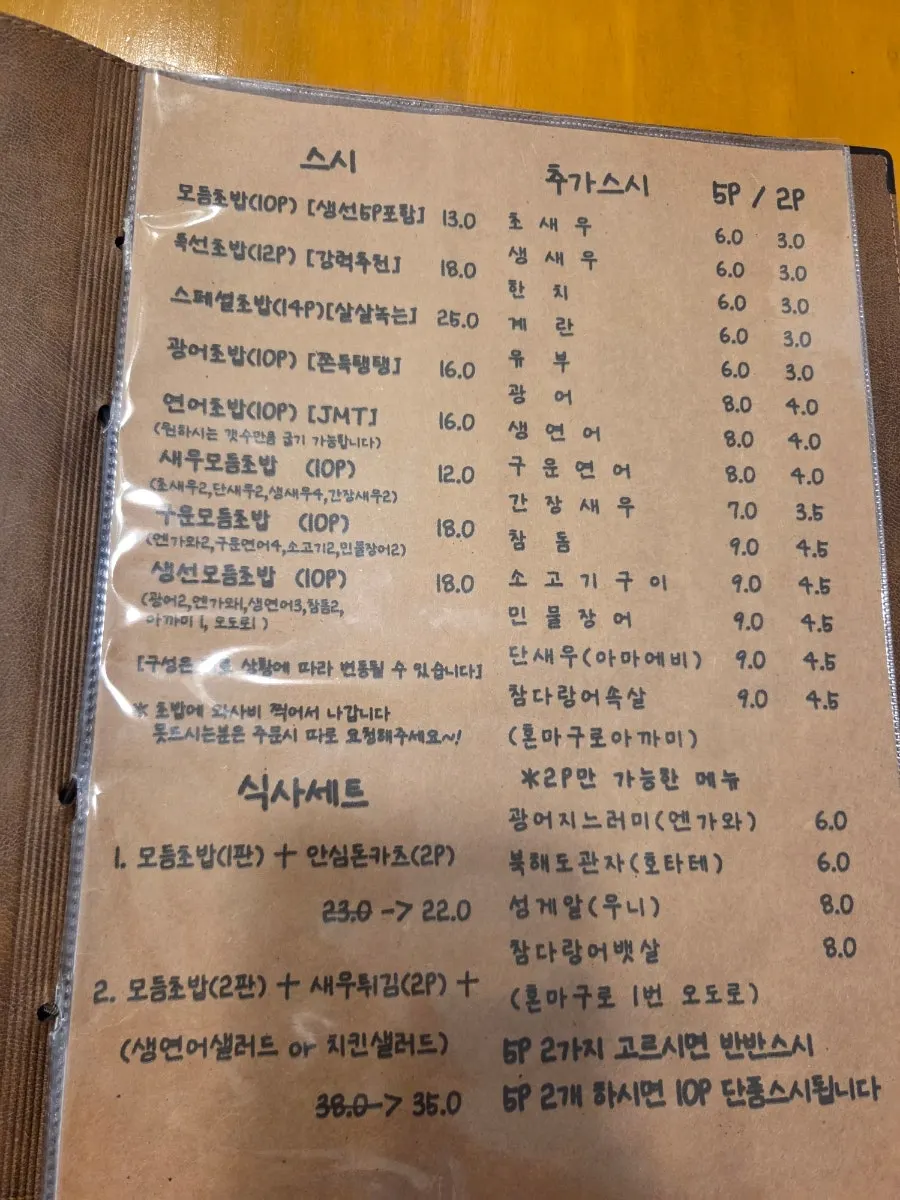 스시
모듬초밥(10P) [생선5P포함] 13.0
특선초밥(12P) [강력추천] 18.0
스페셜초밥(14P)[살살녹는] 25.0
광어초밥(10P) [쫀득탱탱] 16.0
연어초밥(10P) [JMT] 16.0
(원하시는 갯수만큼 굽기 가능합니다)
새우모듬초밥 (10P) 12.0
(초새우2,단새우2,생새우4,간장새우2)
구운모듬초밥 (10P) 18.0
(엔가와2,구운연어4,소고기2,민물장어2)
생선모듬초밥 (10P) 18.0
(광어2,엔가와1,생연어3,참돔2,
아까미1, 오도로1)
[구성은 상황에 따라 변동될 수 있습니다]
* 초밥에 와사비 찍어서 나갑니다
못드시는분은 주문시 따로 요청해주세요~!
식사세트
1. 모듬초밥(1판) + 안심돈카츠(2P)
23.0 -> 22.0
2. 모듬초밥(2판) + 새우튀김(2P) +
(생연어샐러드 or 치킨샐러드)
38.0-> 35.0
추가스시 5P / 2P
초새우 6.0 3.0
생새우 6.0 3.0
한치 6.0 3.0
계란 6.0 3.0
유부 6.0 3.0
광어 8.0 4.0
생연어 8.0 4.0
구운연어 8.0 4.0
간장새우 7.0 3.5
참돔 9.0 4.5
소고기구이 9.0 4.5
민물장어 9.0 4.5
단새우(아마에비) 9.0 4.5
참다랑어속살 9.0 4.5
(혼마구로아까미)
*2P만 가능한 메뉴
광어지느러미(엔가와) 6.0
북해도관자(호타테) 6.0
성게알(우니) 8.0
참다랑어뱃살 8.0
(혼마구로 1번 오도로)
5P 2가지 고르시면 반반스시
5P 2개 하시면 10P 단품스시됩니다